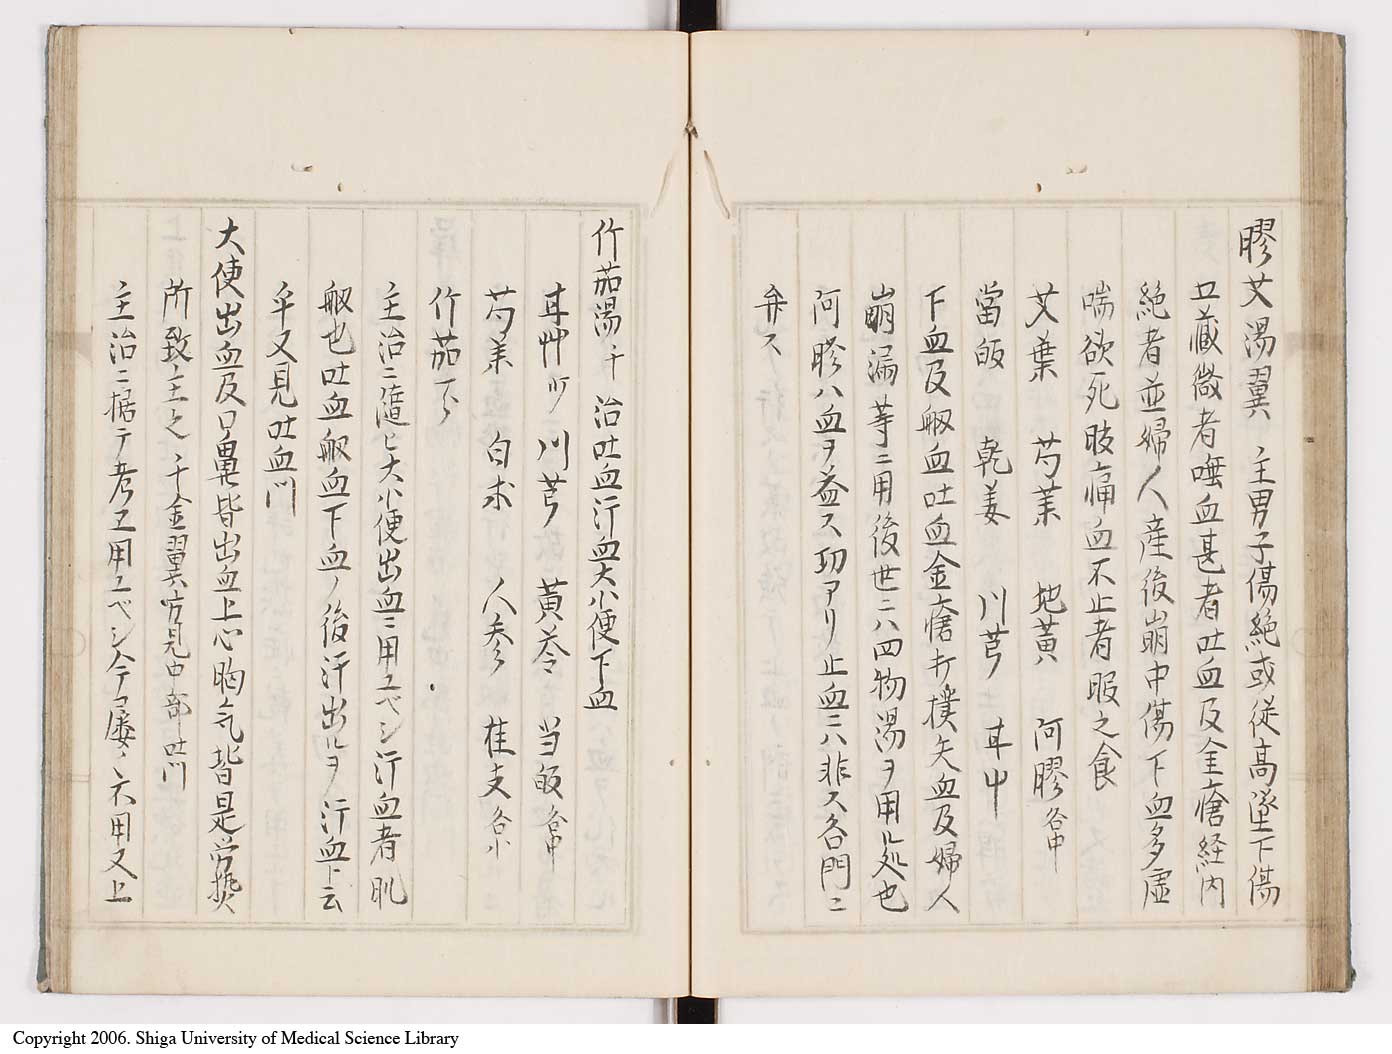 膠艾湯翼 主男子傷絶或従高墜下傷
五蔵微者唾血甚者吐血及金瘡経内
絶者並婦人産後崩中傷下血多虚
喘欲死肢痛血不止者服之食
艾葉 芍薬 地黄 阿膠各中
當皈 乾姜 川芎 甘艸
下血及衂血吐血金瘡打撲失血及婦人
崩漏等ニ用後世ニハ四物湯ヲ用ル処也
阿膠ハ血ヲ益ス功アリ止血ニハ非ス各門ニ
弁ス
竹茹湯千 治吐血汗血大小便下血
甘艸少 川芎 黄芩 当皈各中
芍薬 白朮 人参 桂支各小
竹茹
主治ニ隨ヒ大小便出血ニ用ユベシ汗血者肌
衂也吐血衂血下血ノ後汗出ルヲ汗血ト云
乎又見吐血門
大便出血及口鼻皆出血上心胸气皆是労熱
所致主之 千金翼方見中部吐門
主治ニ据テ考エ用ユベシ今コ屡々不用又上
Copyright 2006. Shiga University of Medical Science Library